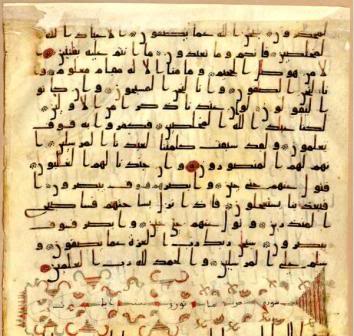 لمحضرون سبحن الله عما يصفون الا عباد الله
المخلصين فانكم وما تعبدون ما انتم عليه بفتنين ا
لا من هو صال الجحيم وما منا الا له مقام معلوم و
انا لنحن الصافون وانا لنحن المسبحون وان كا
نوا ليقولون لو ان عندنا ذكرا من الاولين
لكنا عباد الله المخلصين فكفروا به فسوف
يعلمون ولقد سبقت كلمتنا لعبادنا المرسلين ا
نهم لهم المنصورون وان جندنا لهم الغلبون
فتول عنهم حتى حين وابصرهم فسوف يبصرون ا
فبعذابنا يستعجلون فاذا نزل بساحتهم فسا صبح
المنذرين وتول عنهم حتى حين وابصر فسوف
يبصرون سبحن ربك رب العزة عما يصفون و
سلم على المرسلين والحمد لله رب العلمين